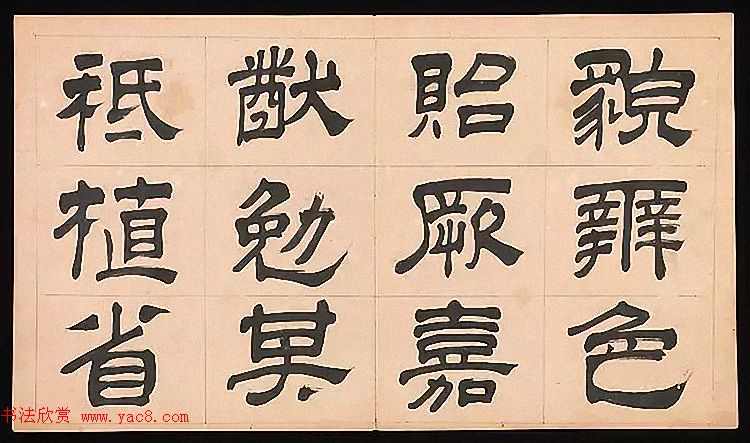 貌辨色
貽厥嘉
猷勉其
祗植省
书法欣赏 www.yac8.com